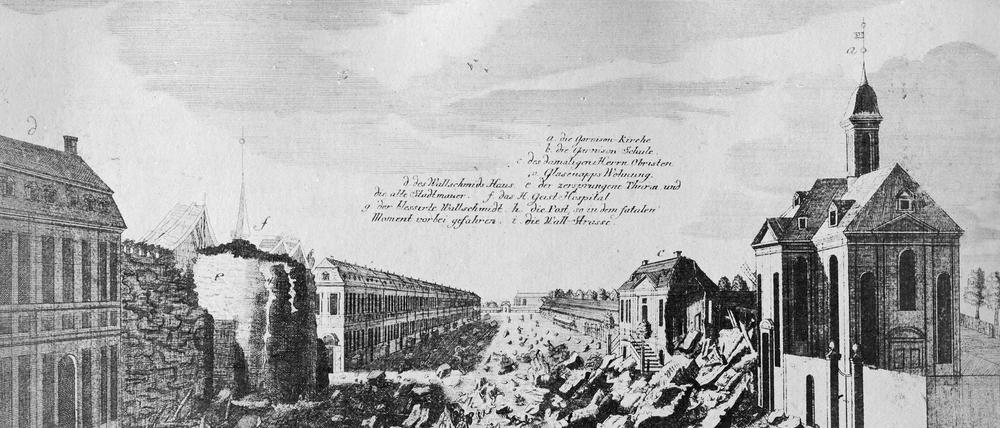 a. die Garnison-Kirche
b. die Garnison Schule.
c des damaligen Herrn Obristen
v. Glasenapps Wohnung.
d des Wallschmids Haus. e der zersprungene Thurm und
die alte Stadtmauer. f das H. Geist-Hospital
g der blessirte Wallschmidt. h die Post, so in dem fatalen
Moment vorbei gefahren. i die Wall-Strasse
a
d
f
e
c